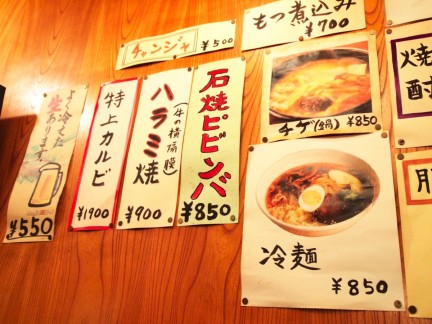 チャンジャ
¥500
もつ煮込み
¥700
よく冷えた
生あります。
¥550
特上カルビ
¥1900
ハラミ焼
(牛の横隔膜)
¥900
石焼ピビンバ
¥850
チゲ(鍋)
¥850
冷麺
¥850
焼
酎